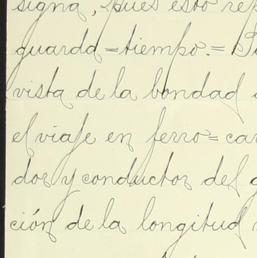 signa, pues esto rep
guarda=tiempo.=
vista de la bondad
el viaje en ferro=car
dor y conductor del g
ción de la longitud